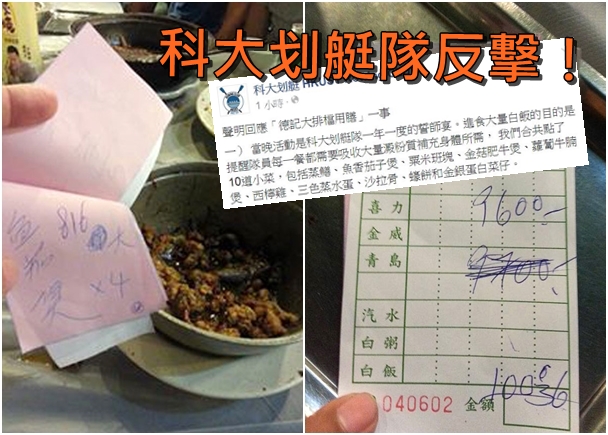 科大划艇隊反擊！
科大划艇
1 小時
聲明回應「德記大排檔用膳」一事
一） 當晚活動是科大划艇隊一年一度的誓師宴。進食大量白飯的目的是
提醒隊員每一餐都需要吸收大量澱粉質補充身體所需， 我們合共點了
10道小菜，包括蒸鱔、魚香茄子煲、粟米班塊、金菇肥牛煲、蘿蔔牛腩
煲、西檸雞、三色蒸水蛋、沙拉骨、蠔餅和金銀蛋白菜仔。
816 大
魚茄
煲 x4
喜力 9600-
金威
青島
汽水
白粥
白飯 100
040602 金額 36